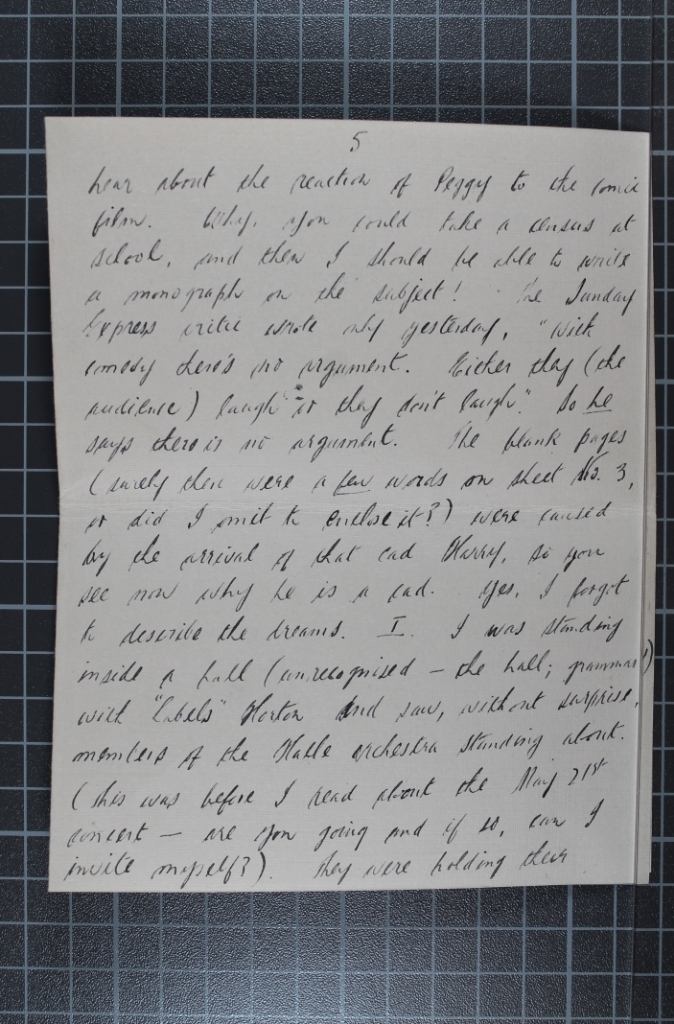 5
hear about the reaction of Peggy to the comic
film. Why, you could take a census at
school, and then I should be able to write
a monograph on the subject! The Sunday
Express critic wrote only yesterday, "With
comedy there's no argument. Either they (the
audience) laugh or they don't laugh." So he
says there is no argument. The blank pages
(surely there were a few words on sheet No. 3,
or did I omit to enclose it?) were caused
by the arrival of that cad Harry, so you
see now why he is a cad. Yes, I forgot
to describe the dreams. I. I was standing
inside a hall (unrecognised – the hall; grammar!)
with "Labels" Horton and saw, without surprise,
members of the Halle orchestra standing about.
(this was before I read about the May 21st
concert – are you going and if so, can I
invite myself?). They were holding their